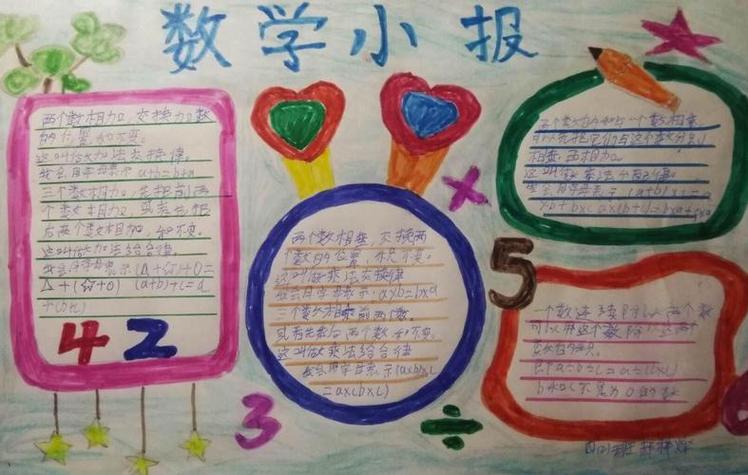 数学小报
两个数相加，交换加数
的位置，和不变。
这叫做加法交换律。
我会用字母表示 a+b=b+a
三个数相加，先把前两
个数相加，或者先把
后两个数相加，和不变。
这叫做加法结合律。
我会用字母表示(△+☆)+○=
△+(☆+○) (a+b)+c=a
+(b+c)
42
两个数相乘，交换两
个数的位置，积不变。
这叫做乘法交换律
我会用字母表示：a×b=b×a
三个数相乘前两个数，
或者先乘后两个数积不变。
这叫做乘法结合律
我会用字母表示(a×b)×c
=a×(b×c)
3
÷
×
两个数的和与一个数相乘，
可以先把它们与这个数分别
相乘再相加。
这叫做乘法分配律。
我会用字母表示 (a+b)×c=
5
一个数连续除以两个数
可以用这个数除以这两个
数的积。
a÷b÷c=a÷(b×c)
b和c不为0的数